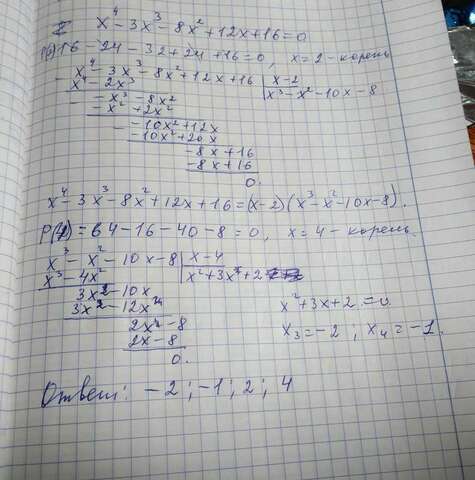 x⁴ - 3x³ - 8x² + 12x + 16 = 0
P(2) 16 - 24 - 32 + 24 + 16 = 0, x = 2 - корень
x⁴ - 3x³ - 8x² + 12x + 16 | x - 2
x⁴ - 2x³ | x³ - x² - 10x - 8
- x³ - 8x²
- x³ + 2x²
- 10x² + 12x
- 10x² + 20x
- 8x + 16
- 8x + 16
0.
x⁴ - 3x³ - 8x² + 12x + 16 = (x - 2)(x³ - x² - 10x - 8).
P(4) = 64 - 16 - 40 - 8 = 0, x = 4 - корень.
x³ - x² - 10x - 8 | x - 4
x³ - 4x² | x² + 3x + 2
3x² - 10x
3x² - 12x
2x - 8
2x - 8
0.
x² + 3x + 2 = 0
x₃ = -2 ; x₄ = -1.
Ответ: -2 ; -1 ; 2 ; 4